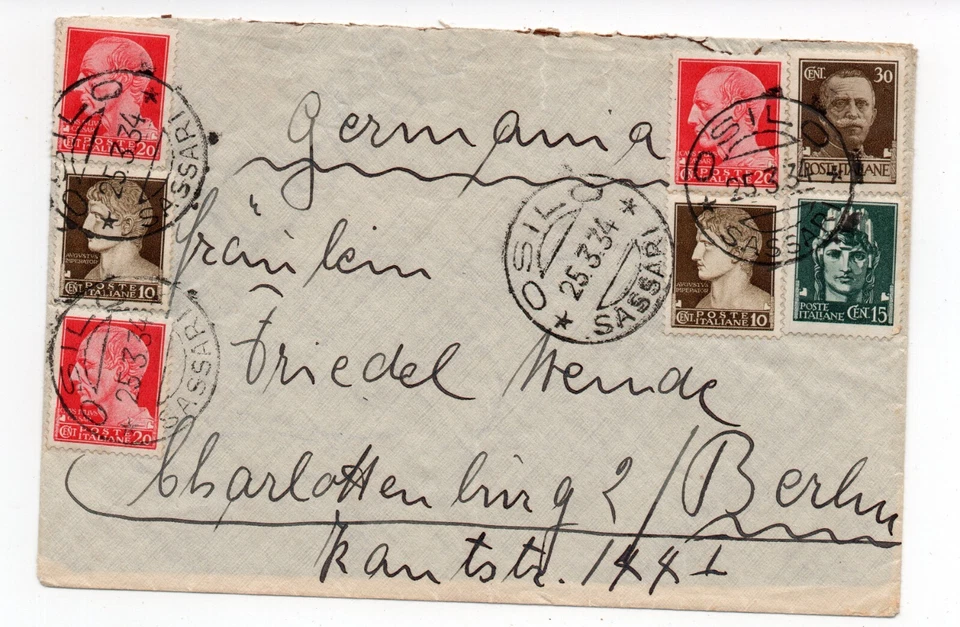 Germania
Fräulein
Friedel Wende
Charlottenburg 2 / Berlin
Kantstr. 144 I
OSILO
25.3.34
SASSARI
OSILO
25.3.34
SASSARI
OSILO
25.3.34
SASSARI
OSILO
25.3.34
SASSARI
CENT. POSTE
ITALIANE 20
AVGVSTVS
IMPERATOR
CENT. POSTE
ITALIANE 10
CENT. POSTE
ITALIANE 20
CENT. POSTE
ITALIANE 20
CENT. 30
POSTE ITALIANE
AVGVSTVS
IMPERATOR
CENT. POSTE
ITALIANE 10
POSTE
ITALIANE CEN. 15